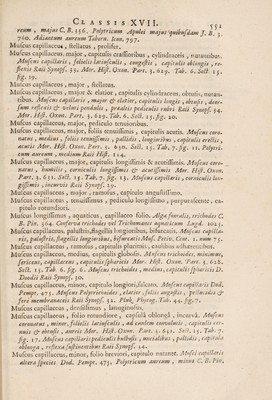 CLASSIS XVII. 554
reum, majus C. B. 356. Polytricum Apulei majus quibusdam J. B. 3.
760. Adiantum aureum Tabern. Icon. 797.
Muscus capillaceus, stellatus, prolifer.
Muscus capillaceus, major, capitulis crassioribus, cylindraceis, nutantibus.
Muscus capillaris, foliolis latiusculis, congestis, capitulis oblongis, reflexis
Raii Synopf. 33. Mor. Hist. Oxon. Part. 3. 629. Tab. 6. Sect. 15.
fig. 19.
Muscus capillaceus, major, stellatus.
Muscus capillaceus, major & elatior, capitulis cylindraceis, obtusis, nutantibus.
Muscus capillaris, major & elatior, capitulis longis, obtusis, deorsum
reflexis & velut pendulis, praelis pediculis rubris Raii Synopf. 34.
Mor. Hist. Oxon. Part. 3. 629. Tab. 6. Sect. 15. fig. 20.
Muscus capillaceus, major, pediculo tenuioribus.
Muscus capillaceus, major, foliis tenuissimis, capitulis acutis. Muscus coronatus,
medius, foliis tenuissimis, pallidis, longioribus, capitulis erectis,
acutis Mor. Hist. Oxon. Part. 3. 630. Sect. 15. Tab. 7. fig. 11. Polytricum
aureum, medium Raii Hist. 124.
Muscus capillaceus, major, capitulis longissimis & acutissimis. Muscus coronatus,
humilis, corniculis longissimis & acutissimis Mor. Hist. Oxon.
Part. 3. 631. Sect. 15. Tab. 7. fig. 13. Muscus capillaris, corniculis longissimis,
incurvis Raii Synopf. 29.
Muscus capillaceus, major, ramosus, capitulo angustissimo.
Muscus capillaceus, tenuissimus, pediculo longissimo, purpurascente, capitulo
rotundiori.
Muscus capillaceus, aquaticus, capillaceo folio. Alga fluvialis, trichodes C.
B. Pin. 364. Conferva trichodes vel Trichomanes aquaticum Lugd. 1023.
Muscus capillaceus, palustris, flagellis longioribus, bifurcatis. Muscus capillaris,
palustris, flagellis longioribus, bifurcatis Mus. Petiv. Cent. 1. num. 75.
Muscus capillaceus, ramosus, capitulis plurimis, caulibus adhaerentibus.
Muscus capillaceus, medius, capitulis globosis. Muscus trichoides, minimus,
sericeus, capillaceus, capitulis sphaericis Mor. Hist. Oxon. Part. 3. 628.
Sect. 15. Tab. 6. fig. 6. Muscus trichoides, medius, capitulis sphaericis D.
Doodii Raii Synopf. 30.
Muscus capillaceus, minor, capitulo longiori, falcato. Muscus capillaris Dod.
Pempt. 475. Muscus Polytrichoides, elatior, foliis angustis, pellucidis &
fere membranaceis Raii Synopf. 31. Pluk. Phytog. Tab. 44. fig. 7.
Muscus capillaceus, densissimus, lanuginosus.
Muscus capillaceus, folio rotundiore, capsula oblonga, incurva. Muscus
coronatus, minor, foliolis latiusculis, ad coelum convolutis, capitulis cernuis
& obtusis, aureis Mor. Hist. Oxon. Part. 3. 631. Sect. 15. Tab. 7.
fig. 17. Muscus capillaris pediculis bulbosis, metulosus, pallidis, capitulo
oblongo, reflexo sustinentibus Raii Synopf. 24.
Muscus capillaceus, minor, folio breviori, capitulo nutante. Musci capillaris
altera species Dod. Pempt. 475. Polytricum aureum, minus C. B. Pin.